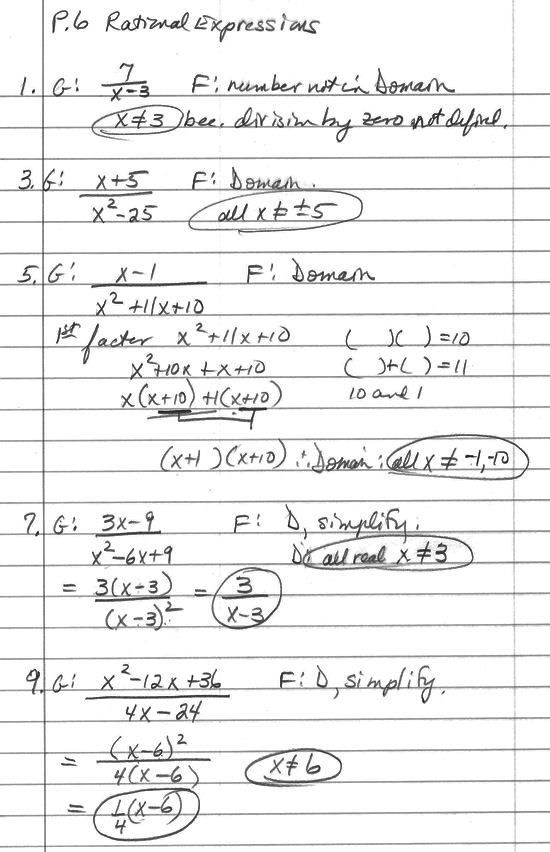 P.6 Rational Expressions
1. G: 7/(x-3) F: number not in Domain
x≠3 bec. division by zero not defined.
3. G: (x+5)/(x²-25) F: Domain.
all x ≠ ±5
5. G: (x-1)/(x²+11x+10) F: Domain
1st factor x²+11x+10 ( )( )=10
x²+10x+x+10 ( )+( )=11
x(x+10)+1(x+10) 10 and 1
(x+1)(x+10) ∴ Domain: all x ≠ -1,-10
7. G: (3x-9)/(x²-6x+9) F: D, simplify.
D: all real x≠3
= 3(x-3)/(x-3)² = 3/(x-3)
9. G: (x²-12x+36)/(4x-24) F: D, simplify.
= (x-6)²/4(x-6) x≠6
= 1/4(x-6)